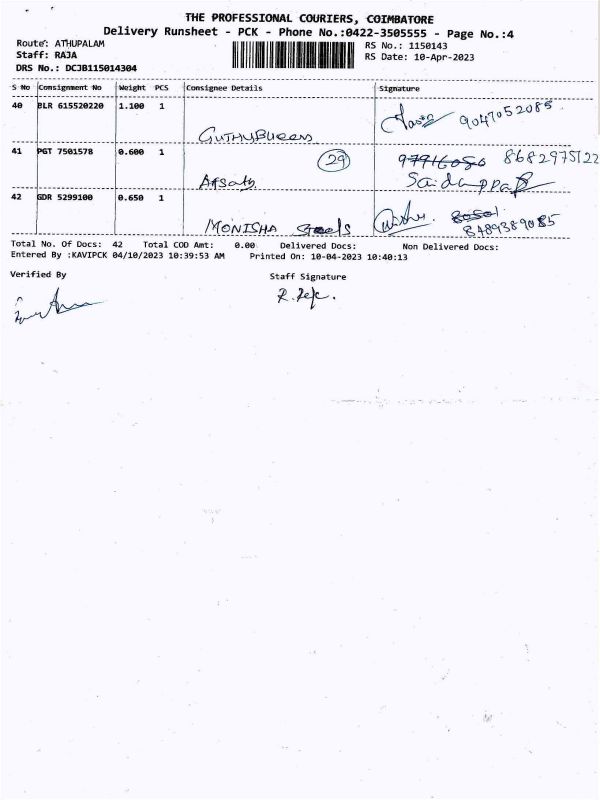 THE PROFESSIONAL COURIERS, COIMBATORE
Delivery Runsheet - PCK - Phone No.:0422-3505555 - Page No.:4
Route: ATHUPALAM
RS No.: 1150143
Staff: RAJA
RS Date: 10-Apr-2023
DRS No.: DCJB115014304
S No Consignment No Weight PCS Consignee Details Signature
40 BLR 615520220 1.100 1
9047052085
GUTHUBUEEN
41 PGT 7501578 0.600 1 29 8682975122
Afsath Saidappa
42 GDR 5299100 0.650 1
MONISHA Steels 8489389085
Total No. Of Docs: 42 Total COD Amt: 0.00 Delivered Docs: Non Delivered Docs:
Entered By :KAVIPCK 04/10/2023 10:39:53 AM Printed On: 10-04-2023 10:40:13
Verified By Staff Signature